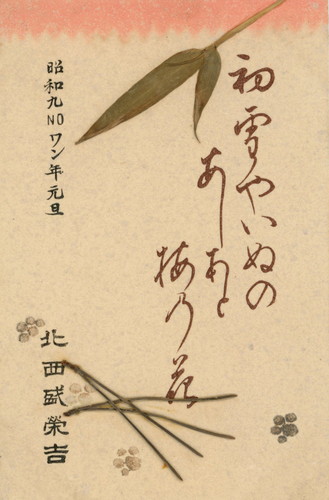 初雪やいぬの
あしあと
梅乃花
昭和九NOワン年元旦
北西盛榮吉